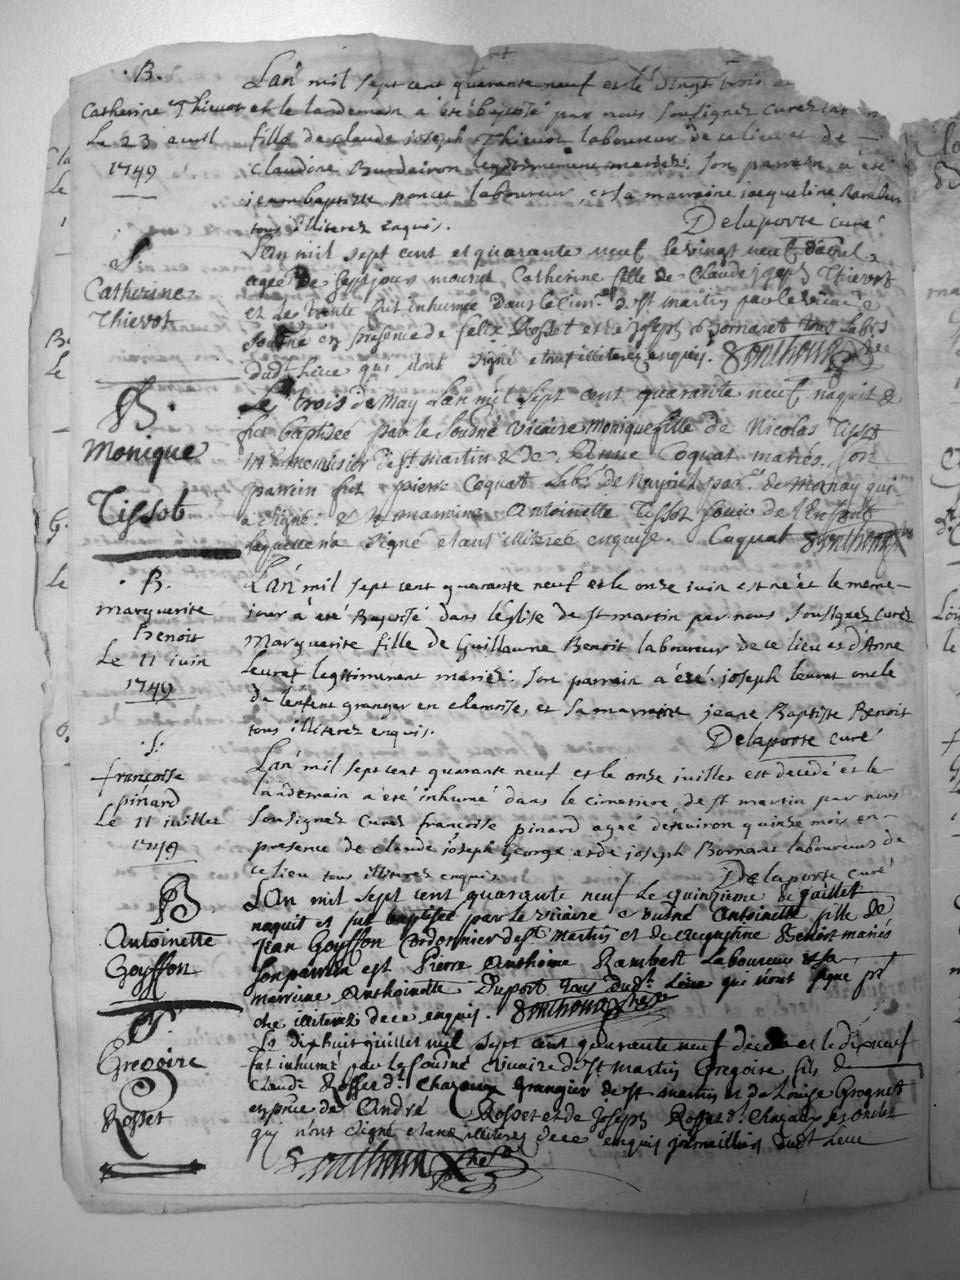 B.
Catherine Thievot
Le 23 avril
1749
L'an mil sept cent quarante neuf et le vingt trois
et le landemain a été baptisé par nous soussignez curez
fille de claude joseph Thievot laboureur de ce lieu et de
claudine Burdairon legitimement mariez. Son parrain a été
jean baptiste poncet laboureur, et sa marraine jacqueline Rambert
tous illiterez enquis. Delaporte curé
S.
Catherine
Thievot
L'an mil sept cent et quarante neuf le vingt neuf d'avril
agée de sept jours mourut Catherine fille de Claude joseph Thievot
et le trente fut inhumée dans le cim.re de st martin par le vicaire
soussné en presence de felix Rosset et de joseph Bornaret tous lab.rs
dud.t lieu qui n'ont signé etant illiterez enquis.
B.
Monique
Tissot
Le trois de May L'an mil sept cent quarante neuf naquit et
fut baptisée par le soussné vicaire monique fille de Nicolas Tissot
m.e menuisier de st martin et de Anne Coquat mariés. son
parrein fut pierre Coquat Lab.r de par. de mornay qui
a signé. et la marreine Antoinette Tissot de l'enfant
laquelle n'a signé etant illiterée enquise. Coquat
B.
marguerite
Benoit
Le 11 juin
1749
L'an mil sept cent quarante neuf et le onze juin est né et le meme
jour a été Baptisé dans l'église de st martin par nous soussignez curez
Marguerite fille de Guillaume Benoit laboureur de ce lieu et d'Anne
leurat legitimement mariez. son parrain a été joseph leurat oncle
de l'enfent granger en et sa marraine jeane Baptiste Benoit
tous illiterez enquis. Delaporte curé
S.
françoise
pinard
Le 11 juillet
1749
L'an mil sept cent quarante neuf et le onze juillet est decedé et le
landemain a été inhumé dans le cimetiere de st martin par nous
soussignez curez françoise pinard agée d'environ quinze mois en
presence de claude joseph George et de joseph Bornaret laboureurs de
ce lieu tous illiterez enquis. Delaporte curé
B
Antoinette
Goyffon
L'an mil sept cent quarante neuf Le quinzieme de juillet
naquit et fut baptisée par le vicaire soussné Antoinette fille de
Jean Goyffon Cordonnier de st martin et de Augustine Benoit mariés
son parrein est Pierre Anthoine Rambert Laboureur et sa
marreine Anthoinette Duport tous dud.t Lieu qui n'ont signé p.r
etre illiterez de ce enquis.
S.
Gregoire
Rosset
Le dixhuit juillet mil sept cent quarante neuf deceda et le dixneuf
fut inhumé par le soussné vicaire de st martin Gregoire fils de
Claude Rosset d. Chazaux Grangier de st martin et de Louise Grognet
en pnce de André Rosset et de Joseph Rosset d. Chazaux
qui n'ont signé etans illiterez de ce enquis journailliers dud.t Lieu